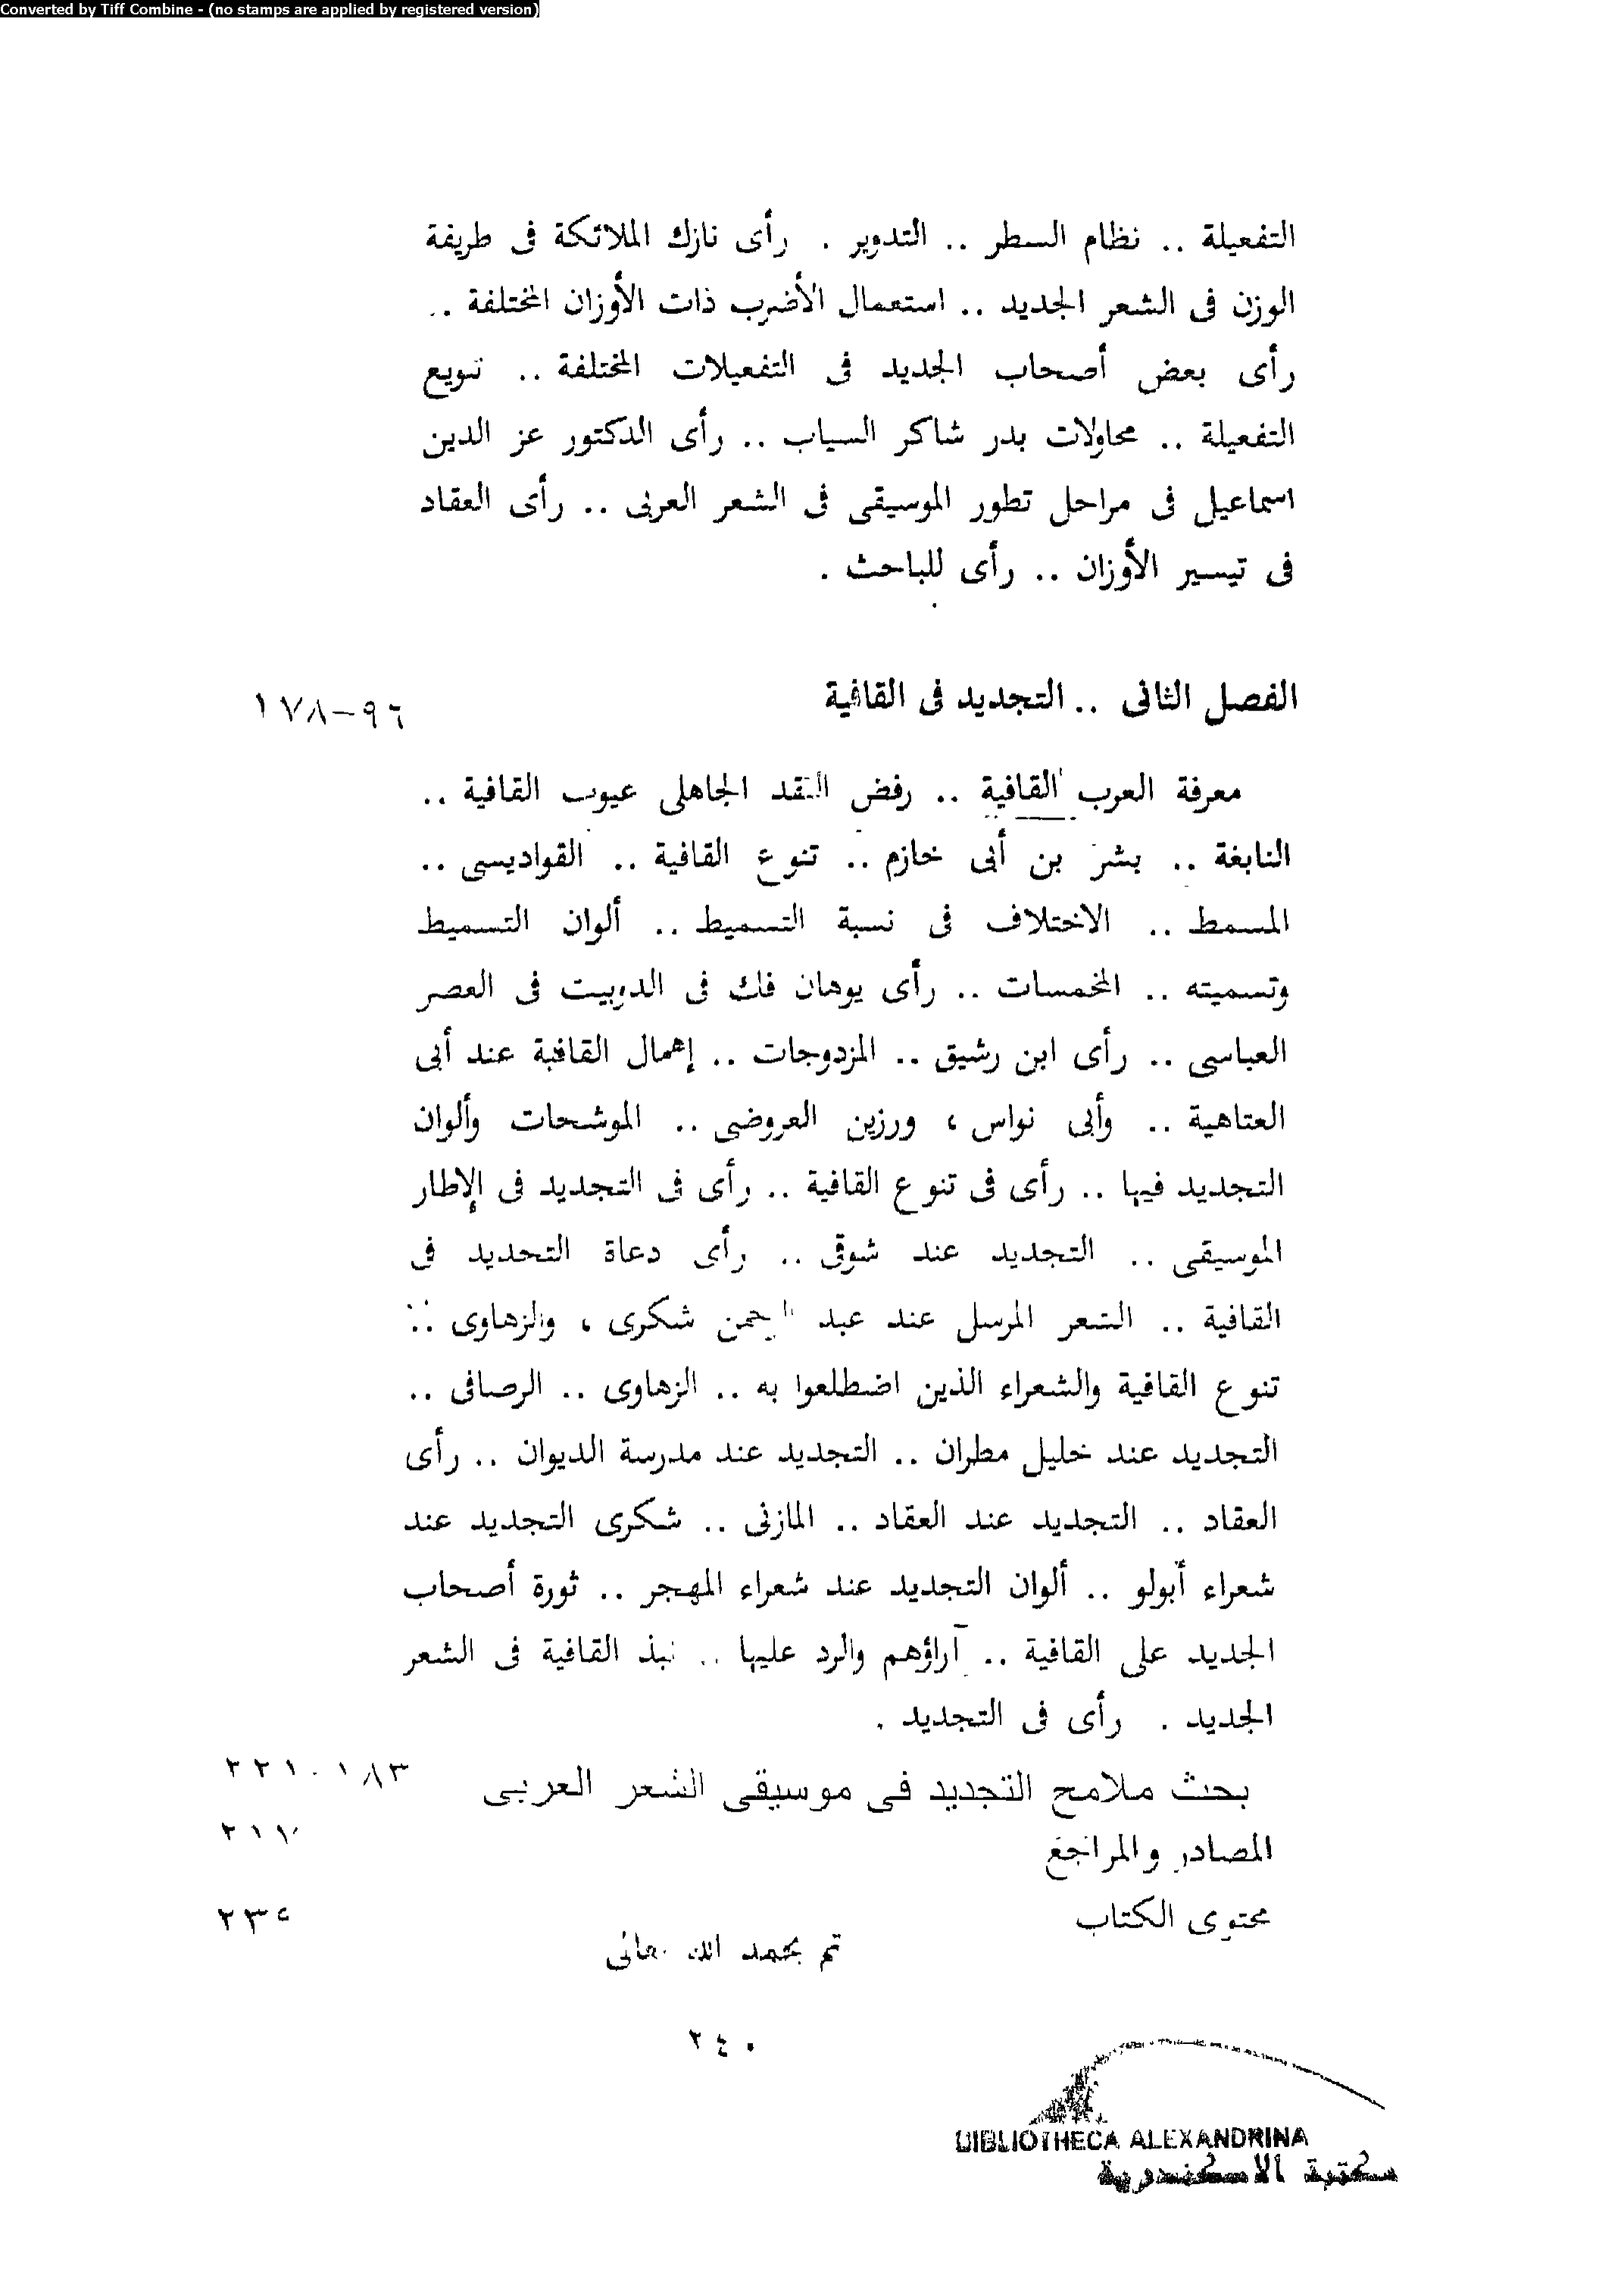 Converted by Tiff Combine - (no stamps are applied by registered version)
التفعيلة .. نظام السطر .. التدوير . رأى نازك الملائكة فى طريقة
الوزن فى الشعر الجديد .. استعمال الأضرب ذات الأوزان المختلفة ..
رأى بعض أصحاب الجديد فى التفعيلات المختلفة .. تنويع
التفعيلة .. محاولات بدر شاكر السياب .. رأى الدكتور عز الدين
اسماعيل فى مراحل تطور الموسيقى فى الشعر العربى .. رأى العقاد
فى تيسير الأوزان .. رأى للباحث .
الفصل الثانى .. التجديد فى القافية
٩٦-١٧٨
معرفة العرب القافية .. رفض النقد الجاهلى عيوب القافية ..
النابغة .. بشر بن أبى خازم .. تنوع القافية .. القواديسى ..
المسمط .. الاختلاف فى نسبة التسميط .. ألوان التسميط
وتسميته .. المخمسات .. رأى يوهان فك فى الدوبيت فى العصر
العباسى .. رأى ابن رشيق .. المزدوجات .. إهمال القافية عند أبى
العتاهية .. وأبى نواس ، ورزين العروضى .. الموشحات وألوان
التجديد فيها .. رأى فى تنوع القافية .. رأى فى التجديد فى الإطار
الموسيقى .. التجديد عند شوقى .. رأى دعاة التجديد فى
القافية .. الشعر المرسل عند عبد الرحمن شكرى ، والزهاوى ..
تنوع القافية والشعراء الذين اضطلعوا به .. الزهاوى .. الرصافى ..
التجديد عند خليل مطران .. التجديد عند مدرسة الديوان .. رأى
العقاد .. التجديد عند العقاد .. المازنى .. شكرى التجديد عند
شعراء أبولو .. ألوان التجديد عند شعراء المهجر .. ثورة أصحاب
الجديد على القافية .. آراؤهم والرد عليها .. نبذ القافية فى الشعر
الجديد . رأى فى التجديد .
بحث ملامح التجديد فى موسيقى الشعر العربى
١٨٣-٢٢١
المصادر والمراجع
محتوى الكتاب
تم بحمد الله تعالى
٢٤٠
BIBLIOTHECA ALEXANDRINA
مكتبة الاسكندرية